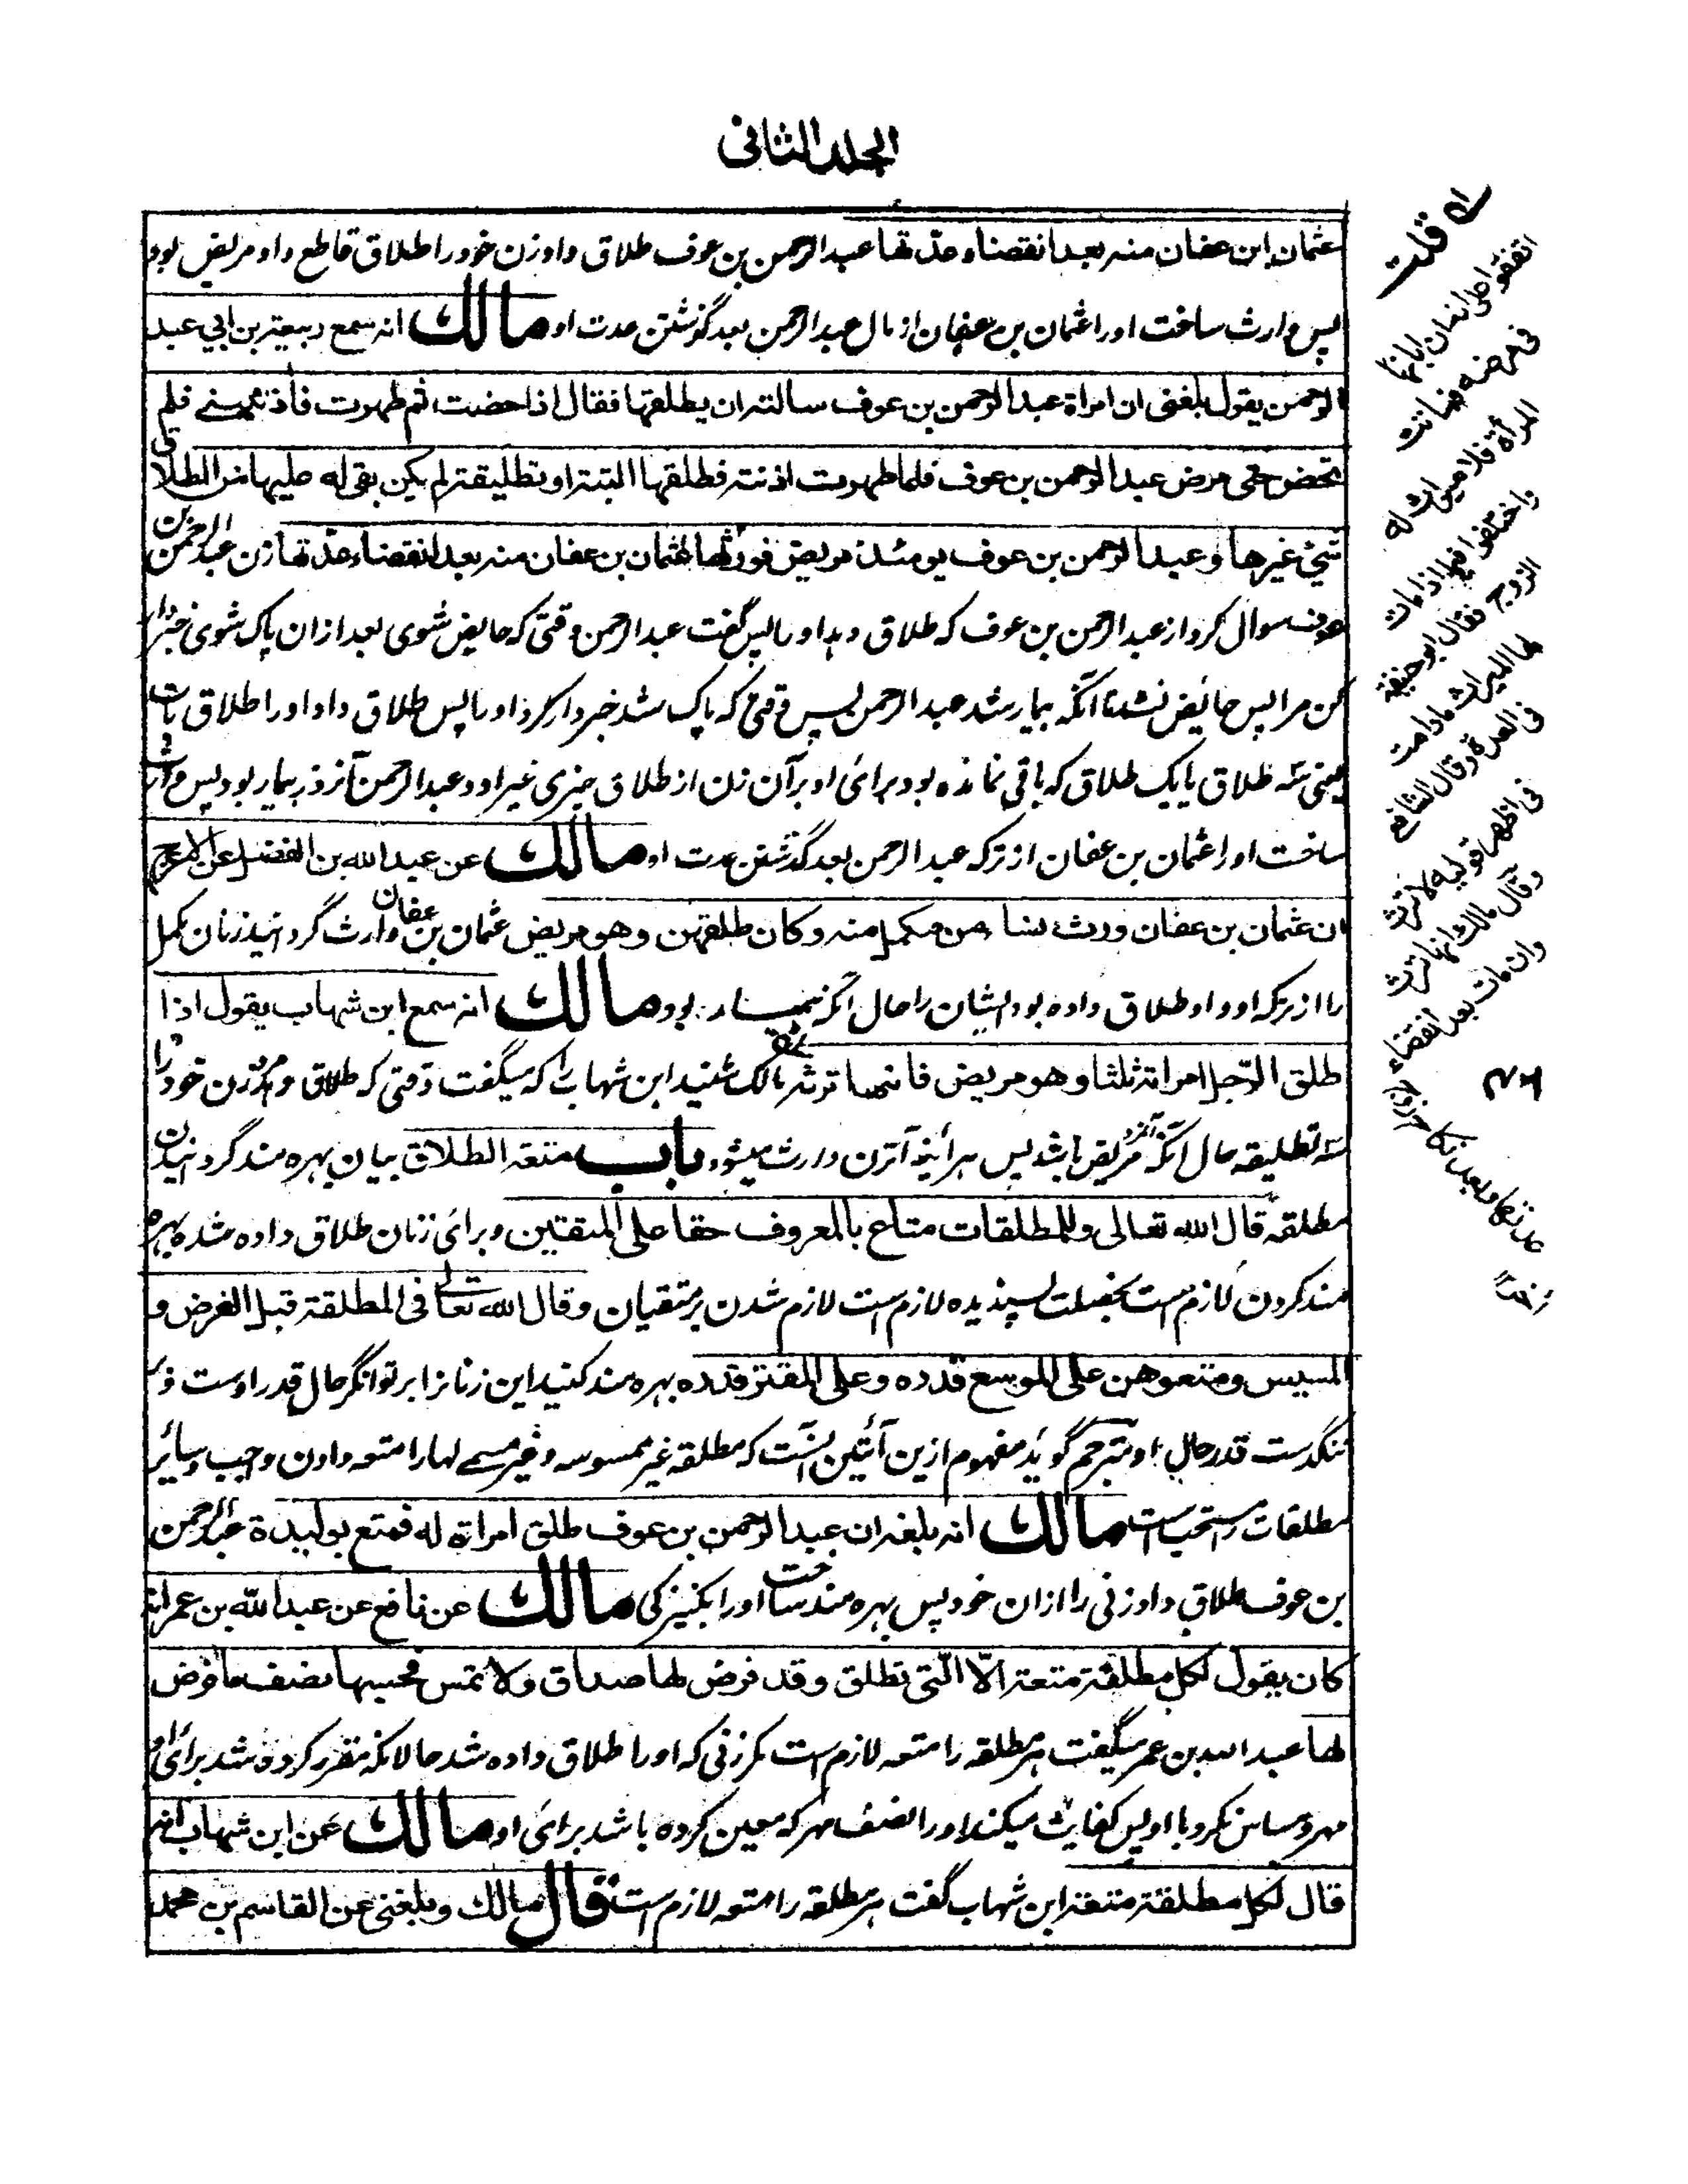 الجلد الثانی
عثمان ابن عفان منه بعد انقضاء عدّتها عبد الرحمن بن عوف طلاق داد زن خود را طلاق قاطع و او مریض بود
پس وارث ساخت او را عثمان بن عفان از مال عبد الرحمن بعد گذشتن عدت او مالك انه سمع ربیعة بن ابي عبد
الرحمن یقول بلغنی ان امراة عبد الرحمن بن عوف سالته ان یطلقها فقال اذا حضت ثم طهرت فأذنینے فلم
تحض حتی مرض عبد الرحمن بن عوف فلما طهرت اذنته فطلقها البتة او تطلیقة لم یکن بقی له علیها من الطلاق
شیٔ غیرها و عبد الرحمن بن عوف یومئذ مریض فورثها عثمان بن عفان منه بعد انقضاء عدّتها زن عبد الرحمن بن
عوف سوال کرد از عبد الرحمن بن عوف که طلاق دهد او را پس گفت عبد الرحمن وقتی که حایض شوی بعد ازان پاک شوی خبردار
کن مرا پس حائض نشد تا آنکه بیمار شد عبد الرحمن پس وقتی که پاک شد خبردار کرد او را پس طلاق داد او را طلاق بات
یعنی سه طلاق یا یک طلاق که باقی نمانده بود برای او بر آن زن از طلاق چیزی غیر او و عبد الرحمن آنروز بیمار بود پس وارث
ساخت او را عثمان بن عفان از ترکه عبد الرحمن بعد گذشتن عدت او مالك عن عبد الله بن الفضل عن الاعرج
ان عثمان بن عفان ورث نساء بن مکمل منه و کان طلقهن و هو مریض عثمان بن عفان وارث گردانید زنان مکمل
را از ترکه او و او طلاق داده بود ایشان را حال آنکه بیمار بود مالك انه سمع ابن شهاب یقول اذا
طلق الرّجل امراته ثلثا و هو مریض فانها ترثه مالک شنید ابن شهاب را که میگفت وقتی که طلاق دهد مرد زن خود را
سه تطلیقه حال آنکه آنمرد مریض باشد پس هر آئینه آنزن وارث میشود باب متعة الطلاق بیان بهره مند گردانیدن
مطلقه قال الله تعالی و للمطلقات متاع بالمعروف حقا علی المتقین و برای زنان طلاق داده شده بهره
مند کردن لازم است بخصلت پسندیده لازم است لازم شدن بر متقیان و قال الله تعالی فی المطلقة قبل الفرض و
المسیس و متعوهن علی الموسع قدره و علی المقتر قدره بهره مند کنید این زنانرا بر توانگر حال قدر اوست و بر
تنگدست قدر حال او مترجم گوید مفهوم ازین آئتین آنست که مطلقه غیر ممسوسه و غیر مسمے لها را متعه دادن واجب و سائر
مطلقات را مستحب است مالك انه بلغه ان عبد الرحمن بن عوف طلق امراة له فمتع بولیدة عبد الرحمن
بن عوف طلاق داد زنی را ازان خود پس بهره مند ساخت او را بکنیزکی مالك عن نافع عن عبد الله بن عمر انه
کان یقول لکل مطلقة متعة الّا الّتی تطلق و قد فرض لها صداق و لا تمس فحسبها نصف ما فرض
لها عبد الله بن عمر میگفت هر مطلقه را متعه لازم است مگر زنی که او را طلاق داده شد حالانکه مقرر کرده شد برای او
مهر و مساس نکرد با او پس کفایت میکند او را نصف مهر که معین کرده باشد برای او مالك عن ابن شهاب انه
قال لکل مطلقة متعة ابن شهاب گفت هر مطلقه را متعه لازم است قال مالك و بلغنی عن القاسم بن محمد
قلت
اتفقوا علی انه ان ابانها
فی مرضه فماتت
المرأة فلا میراث له
واختلفوا فیما اذا مات
الزوج فقال ابو حنیفة
لها المیراث ما دامت
فی العدة و قال الشافعی
فی اظهر قولیه لا ترث
وقال مالک انها ترث
وان مات بعد انقضاء
عدتها و بعد نکاح زوج